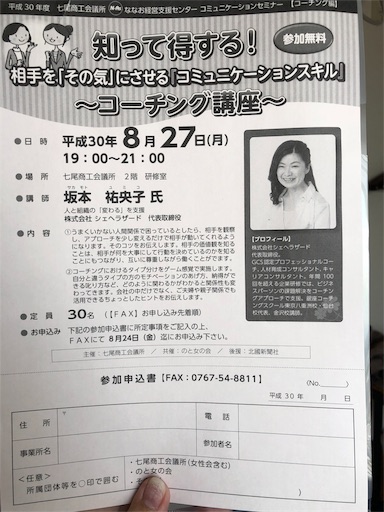 平成30年度 七尾商工会議所 ななお経営支援センター コミュニケーションセミナー 【コーチング編】
知って得する!
参加無料
相手を「その気」にさせる『コミュニケーションスキル』
～コーチング講座～
● 日 時 平成30年8月27日(月)
19：00～21：00
● 場 所 七尾商工会議所 2階 研修室
● 講 師 坂本 祐央子 氏
人と組織の「変わる」を支援
株式会社 シェヘラザード 代表取締役
● 内 容 ①うまくいかない人間関係で困っているとしたら、相手を観察
し、アプローチを少し変えるだけで相手が動いてくれるよう
になります。そのコツをお伝えします。相手の価値観を知る
ことは、相手が何を大事にして行動を決めているのかを知る
ことにもつながり、互いに尊重しながら働くことができます。
②コーチングにおけるタイプ分けをゲーム感覚で実施します。
自分と違うタイプの方のモチベーションのあげ方、納得がで
きる叱り方など、どのように関わるかがわかると関係性も変
わってきます。会社の中だけでなく、ご夫婦や親子関係でも
活用できるちょっとしたヒントをお伝えします。
【プロフィール】
株式会社シェヘラザード
代表取締役。
GCS認定プロフェッショナルコー
チ、人材育成コンサルタント、キャ
リアコンサルタント。年間100
● 定 員 30名 (【FAX】お申し込み先着順)
● お申込み 下記の参加申込書に所定事項をご記入の上、
FAXにて 8月24日(金) 迄にお申込みください。
主催：七尾商工会議所 / 共催：のと女の会 / 後援：北國新聞社
参加申込書【FAX：0767-54-8811】
(No. )
平成 30 年 月 日
住 所 〒
電 話
事業所名
参加者名
＜任意＞
所属団体等を○印で囲む
・七尾商工会議所(女性会含む)
・のと女の会
・そ